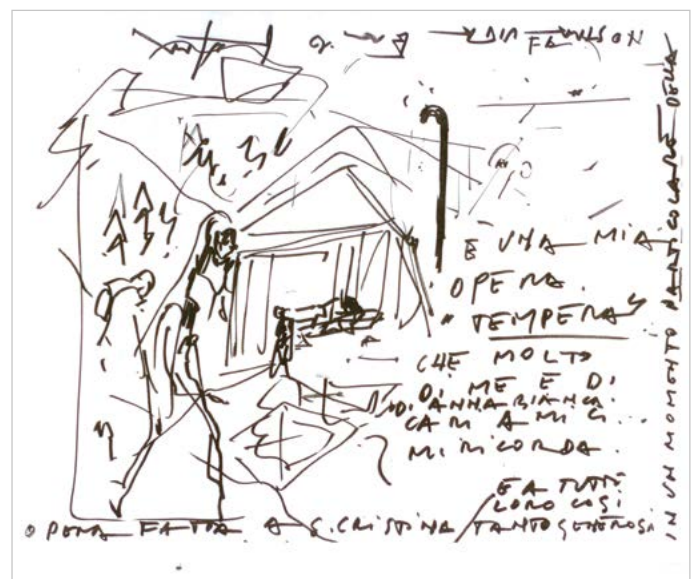 È UNA MIA
OPERA.
"TEMPERA"
CHE MOLTO
DI ME E DI
CARI AMICI
MI RICORDA.
E A TUTTI
LORO COSÌ
TANTO GENEROSI.
OPERA FATTA A S. CRISTINA
IN UN MOMENTO PARTICOLARE DELLA